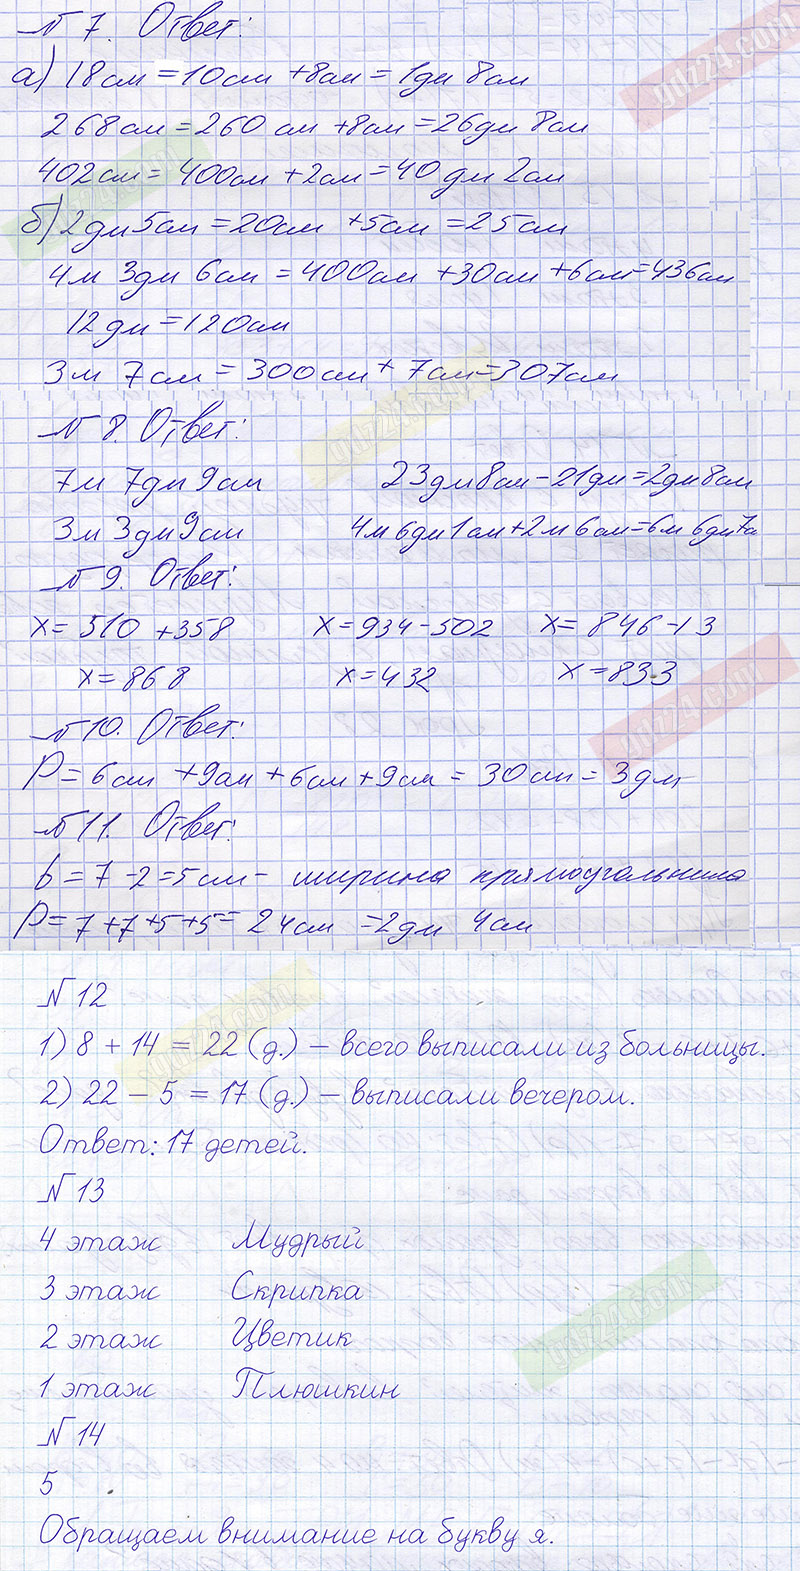 № 7. Ответ:
а) 18 см = 10 см + 8 см = 1 дм 8 см
268 см = 260 см + 8 см = 26 дм 8 см
402 см = 400 см + 2 см = 40 дм 2 см
б) 2 дм 5 см = 20 см + 5 см = 25 см
4 м 3 дм 6 см = 400 см + 30 см + 6 см = 436 см
12 дм = 120 см
3 м 7 см = 300 см + 7 см = 307 см
№ 8. Ответ:
7 м 7 дм 9 см    23 дм 8 см – 21 дм = 2 дм 8 см
3 м 3 дм 9 см    4 м 6 дм 1 см + 2 м 6 см = 6 м 6 дм 7 с
№ 9. Ответ:
х = 510 + 358    х = 934 – 502    х = 846 – 13
х = 868    х = 432    х = 833
№ 10. Ответ:
Р = 6 см + 9 см + 6 см + 9 см = 30 см = 3 дм
№ 11. Ответ:
b = 7 – 2 = 5 см – ширина прямоугольника
Р = 7 + 7 + 5 + 5 = 24 см = 2 дм 4 см
№ 12
1) 8 + 14 = 22 (д.) – всего выписали из больницы.
2) 22 – 5 = 17 (д.) – выписали вечером.
Ответ: 17 детей.
№ 13
4 этаж    Мудрый
3 этаж    Скрипка
2 этаж    Цветик
1 этаж    Плюшкин
№ 14
5
Обращаем внимание на букву я.
gdz24.com
gdz24.com
gdz24.com
gdz24.com
gdz24.com